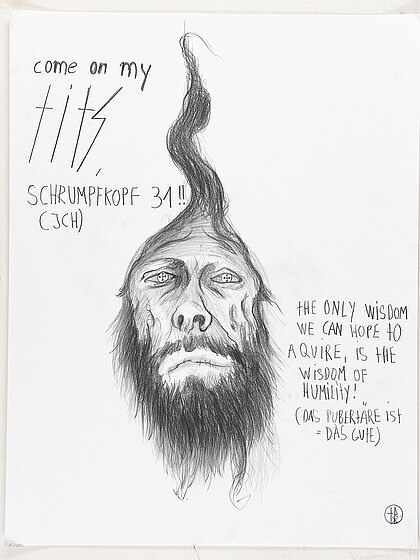 come on my
tits,
SCHRUMPFKOPF 31!!
(ICH)
THE ONLY WISDOM
WE CAN HOPE TO
AQUIRE, IS THE
WISDOM OF
HUMILITY!
(DAS PUBERTÄRE IST
= DAS GUTE)